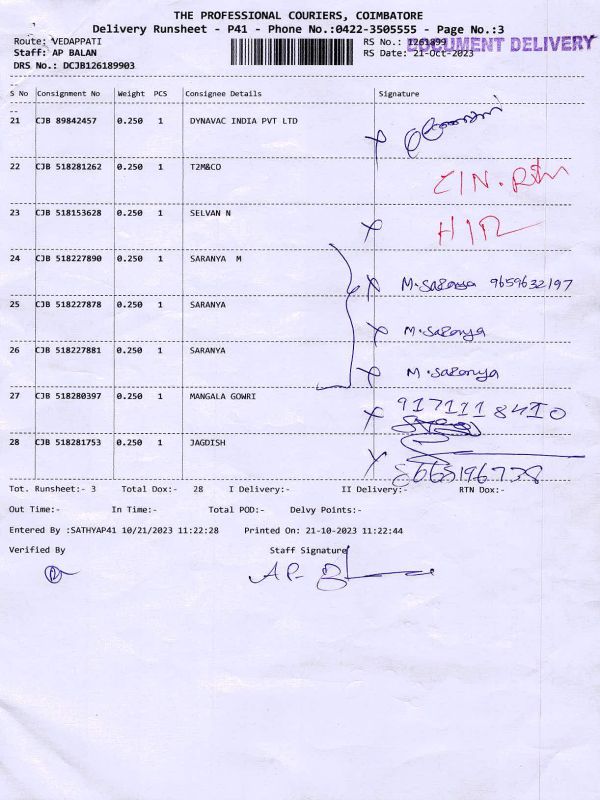 THE PROFESSIONAL COURIERS, COIMBATORE
Delivery Runsheet - P41 - Phone No.:0422-3505555 - Page No.:3
Route: VEDAPPATI
RS No.: 1261899
DOCUMENT DELIVERY
Staff: AP BALAN
RS Date: 21-Oct-2023
DRS No.: DCJB126189903
S No Consignment No Weight PCS Consignee Details Signature
21 CJB 89842457 0.250 1 DYNAVAC INDIA PVT LTD
22 CJB 518281262 0.250 1 T2M&CO
23 CJB 518153628 0.250 1 SELVAN N
24 CJB 518227890 0.250 1 SARANYA M
M. Saranya 9659632197
25 CJB 518227878 0.250 1 SARANYA
M. Saranya
26 CJB 518227881 0.250 1 SARANYA
M. Saranya
27 CJB 518280397 0.250 1 MANGALA GOWRI
9171118410
28 CJB 518281753 0.250 1 JAGDISH
Tot. Runsheet:- 3 Total Dox:- 28 I Delivery:- II Delivery:- RTN Dox:-
Out Time:- In Time:- Total POD:- Delvy Points:-
Entered By :SATHYAP41 10/21/2023 11:22:28 Printed On: 21-10-2023 11:22:44
Verified By Staff Signature